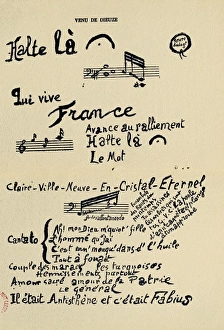 VENU DE DIEUZE
Halte là
Qui vive
France
Avance au ralliement
Halte là
Le Mot
Claire-Ville-Neuve-En-Cristal-Eternel
Cantato
Ah! mon Dieu m'quiot' fille
L'homme qu'j'ai
C'est un' mouqu' dans d' l'huile
Tout à fouait
Couple des marais les turquoises
Hennissements partout
Amour sacré amour de la Patrie
Le général
Il était Antisthène et c'était Fabius